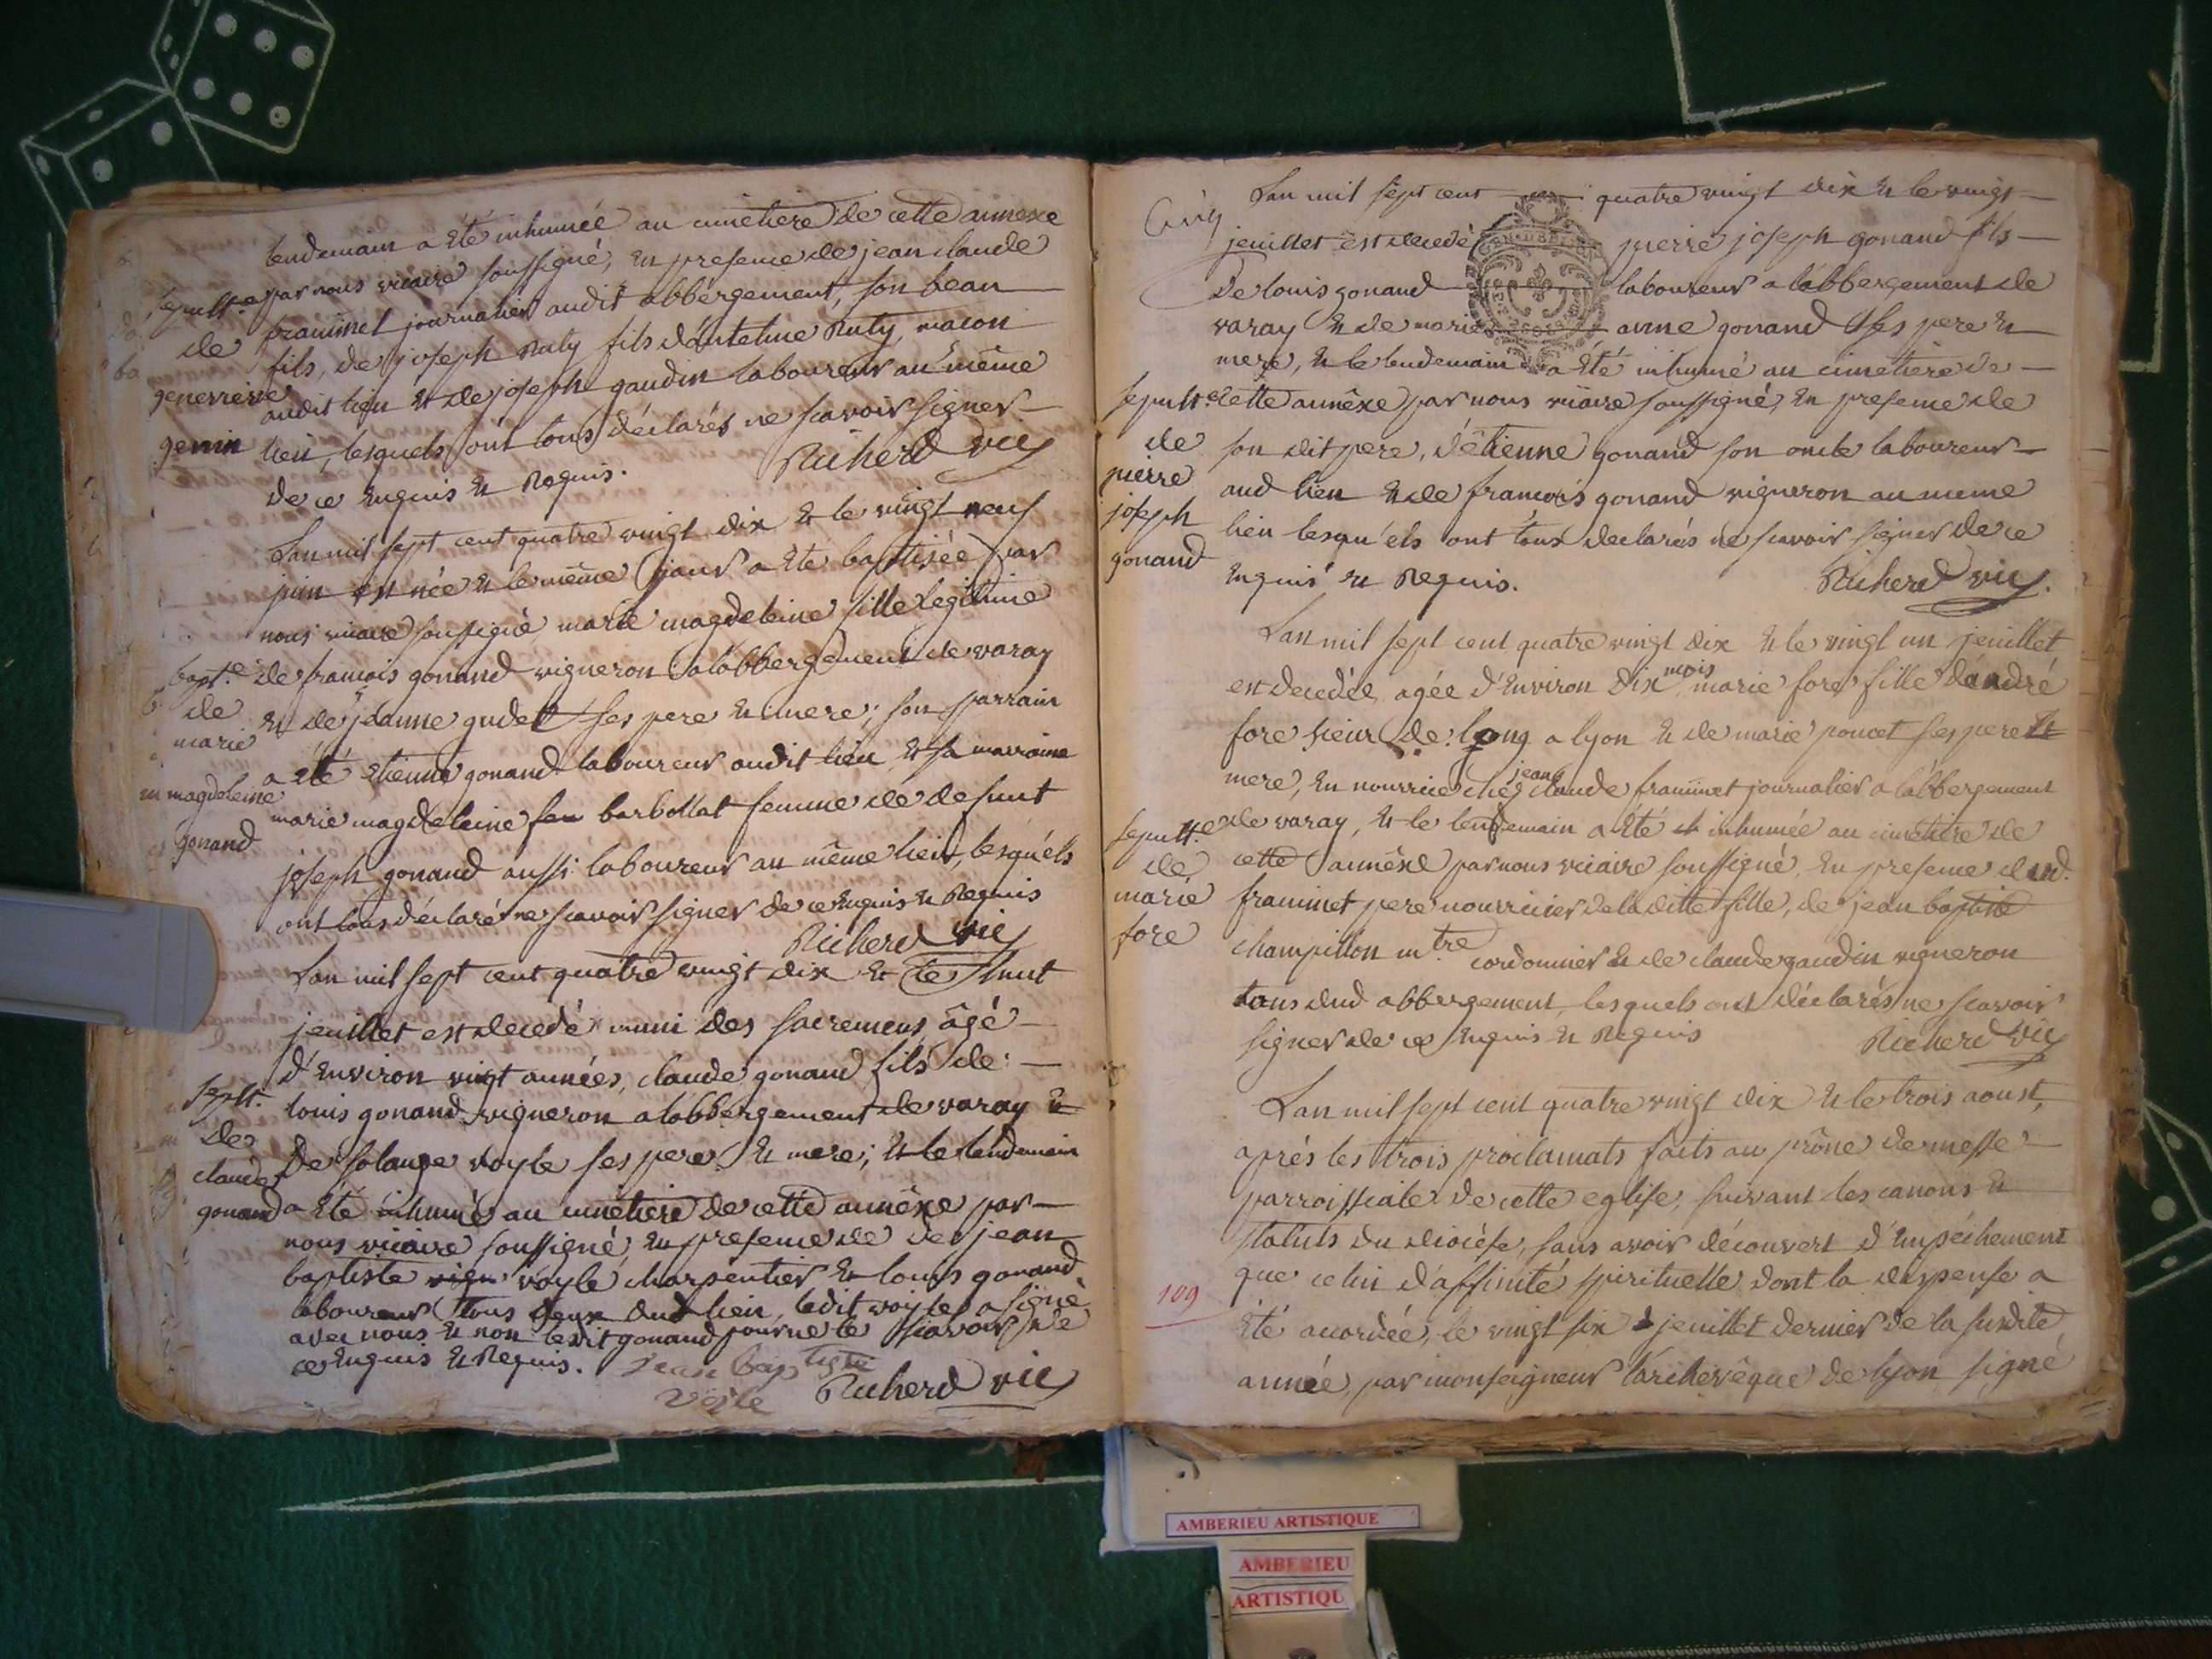 lendemain a été inhumée au cimetiere de cette annexe
par nous vicaire soussigné, en presence de jean claude
framinet journalier audit abbergement, son beau
fils, de joseph ruty fils d'anteline Ruty, macon
audit lieu et de joseph gaudin laboureur au même
lieu, lesquels ont tous déclarés ne scavoir signer
de ce enquis et Requis. Richerd vic
sepult.e
de
genin
Lan mil sept cent quatre vingt dix et le vingt neuf
juin est née et le même jour a été baptisée par
nous vicaire soussigné marie magdeleine fille legitime
de francois gonand vigneron a labbergement de varay
et de jeanne gudet ses pere et mere; son parrain
a été etienne gonand laboureur audit lieu et sa marraine
marie magdeleine barbollat femme de defunt
joseph gonand aussi laboureur au même lieu, lesquéls
ont tous déclaré ne scavoir signer de ce enquis et Requis
Richerd vic
bapt.e
de
marie
magdeleine
gonand
Lan mil sept cent quatre vingt dix et le huit
jeuillet est decedé muni des sacremens âgé
d'environ vingt années, claude gonand fils de
louis gonand vigneron a labbergement de varay et
de solange voyle ses pere et mere; et le lendemain
a été inhumé au cimetiere de cette annéxe par
nous vicaire soussigné, en presence de de jean
baptiste voyle charpentier et louis gonand
laboureur tous deux dud lieu, ledit voyle a signé
avec nous et non ledit gonand pour ne le scavoir de
ce enquis et Requis. Jean baptiste
voyle Richerd vic
seplt.
de
claude
gonand
Lan mil sept cent quatre vingt dix et le vingt
jeuillet est decedé pierre joseph gonand fils
de louis gonand laboureur a labbergement de
varay et de marie anne gonand ses pere et
mere, et le lendemain a été inhumé au cimetiere de
cette annêxe par nous vicaire soussigné, en presence de
son dit pere, d'étienne gonand son oncle laboureur
aud lieu et de francois gonand vigneron au meme
lieu lesquéls ont tous declarés ne scavoir signer de ce
enquis et Requis. Richerd vic.
sepult.e
de
pierre
joseph
gonand
Lan mil sept cent quatre vingt dix et le vingt un jeuillet
est decedée agée d'environ dix mois marie fore fille d'andré
fore sieur de long a lyon et de marie poncet ses pere et
mere, en nourrice chez jean claude framinet journalier a labbergement
de varay, et le lendemain a été inhumée au cimetiere de
cette annéxe par nous vicaire soussigné, en presence dud.
framinet pere nourricier de la ditte fille, de jean baptiste
champillon m.tre cordonnier et de claude gaudin vigneron
tous dud abbergement, lesquels ont déclarés ne scavoir
signer de ce enquis et Requis Richerd vic
sepult.e
de
marie
fore
Lan mil sept cent quatre vingt dix et le trois aoust,
aprés les trois proclamats faits au prône de messe
parroissiale de cette eglise, suivant les canons et
statuts du diocése, sans avoir découvert d'empéchement
que celui d'affinité spirituelle dont la dispense a
été accordée, le vingt six jeuillet dernier de la susdite
année, par monseigneur l'archevêque de lyon signé
109
AMBERIEU ARTISTIQUE
AMBERIEU
ARTISTIQU